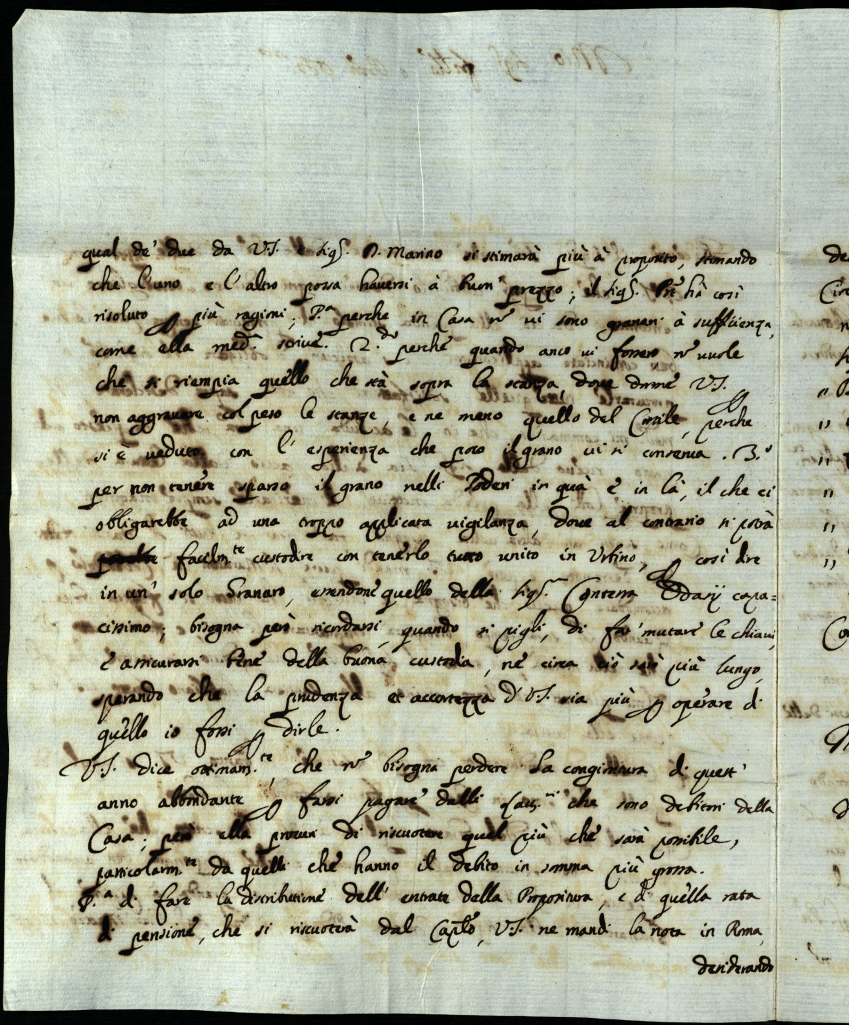 qual de' due da V.S. e sig.r D. Marino si stimarà più à proposito, stimando
che l'uno e l'altro possa haversi à buon prezzo; il sig.r Pñe hà così
risoluto p più ragioni; P.a perche in Casa nõ vi sono granari à sufficienza,
come ella med.a scrive. 2.do perche quando anco vi fossero nõ vuole
che si riempia quello che stà sopra la stanza, dove dorme V.S. p
non aggravare col peso le stanze, e ne meno quello del Cortile, perche
si è veduto con l'esperienza che poco il grano vi si conserva. 3.o
per non tenere sparso il grano nelli Poderi in quà e in là, il che ci
obligarebbe ad una troppo applicata vigilanza, dove al contrario si potrà
facilm.te custodire con tenerlo tutto unito in Urbino, p così dire
in un' solo Granaro, essendone quello della sig.ra Contessa Odasij capa=
cissimo; bisogna però ricordarsi, quando si pigli, di far mutare le chiavi,
e assicurarsi bene della buona custodia, ne circa ciò sarò più lungo,
sperando che la prudenza et accortezza di V.S. sia più p operare di
quello io fossi p dirle.
V.S. dice ottimam.te, che nõ bisogna perdere la congiuntura di quest'
anno abbondante p farsi pagare dalli che sono debitori della
Casa; però ella procuri di riscuotere quel più che sarà possibile,
particolarm.te da quelli che hanno il debito in somma più grossa.
P.a di fare la distributione dell' entrate della Propositura, e di quella rata
di pensione, che si riscuoterà dal Caplõ, V.S. ne mandi la nota in Roma,
desiderando